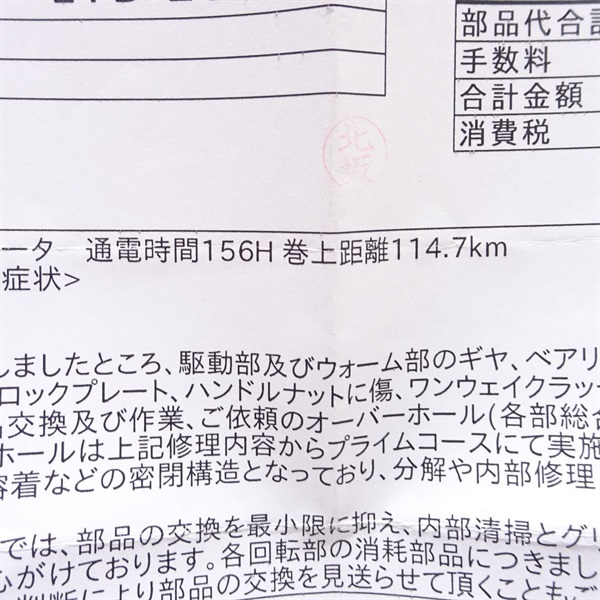 部品代合計
手数料
合計金額
消費税
北坂
ータ 通電時間156H 巻上距離114.7km
症状>
しましたところ、駆動部及びウォーム部のギヤ、ベアリ
ロックプレート、ハンドルナットに傷、ワンウェイクラッ
品交換及び作業、ご依頼のオーバーホール(各部総合
ホールは上記修理内容からプライムコースにて実施
溶着などの密閉構造となっており、分解や内部修理
では、部品の交換を最小限に抑え、内部清掃とグリ
心がけております。各回転部の消耗部品につきまし
判断により部品の交換を見送らせて頂くことも